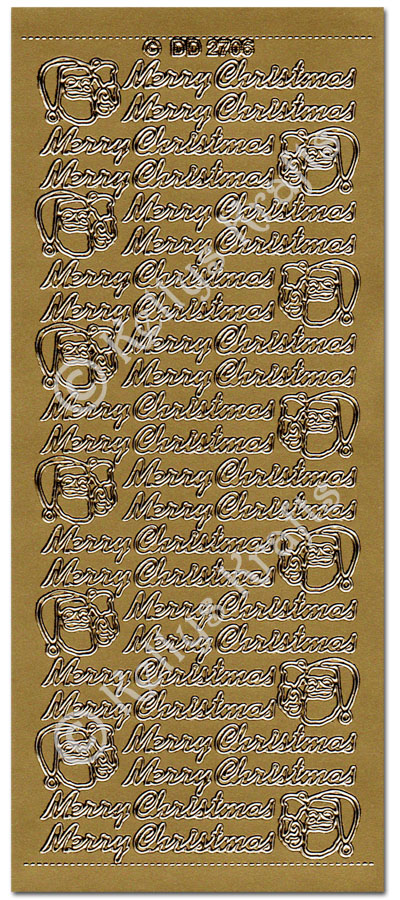 © DD 2706
Merry Christmas
Merry Christmas
Merry Christmas
Merry Christmas
Merry Christmas
Merry Christmas
Merry Christmas
Merry Christmas
Merry Christmas
Merry Christmas
Merry Christmas
Merry Christmas
Merry Christmas
Merry Christmas
Merry Christmas
Merry Christmas
Merry Christmas
Merry Christmas
Merry Christmas
Merry Christmas
Merry Christmas
Merry Christmas
Merry Christmas
Merry Christmas
© Kellys Krafts
© Kellys Krafts